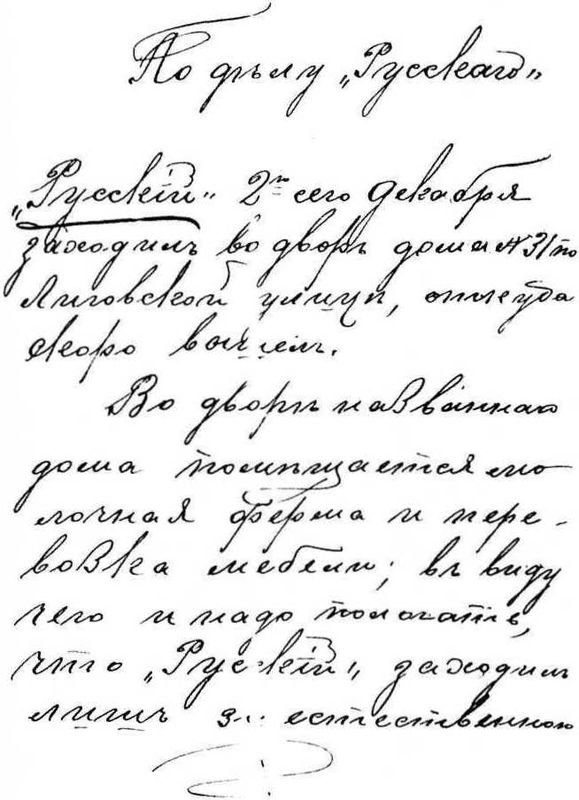 По дѣлу „Русскаго"
„Русскій" 2го сего декабря
заходилъ во дворъ дома № 31 по
Лиговской улицѣ, откуда
скоро вышелъ.
Во дворѣ названнаго
дома помѣщается мо
лочная ферма и пере-
возка мебели; въ виду
чего и надо полагать,
что „Русскій" заходилъ
лишь за естественною